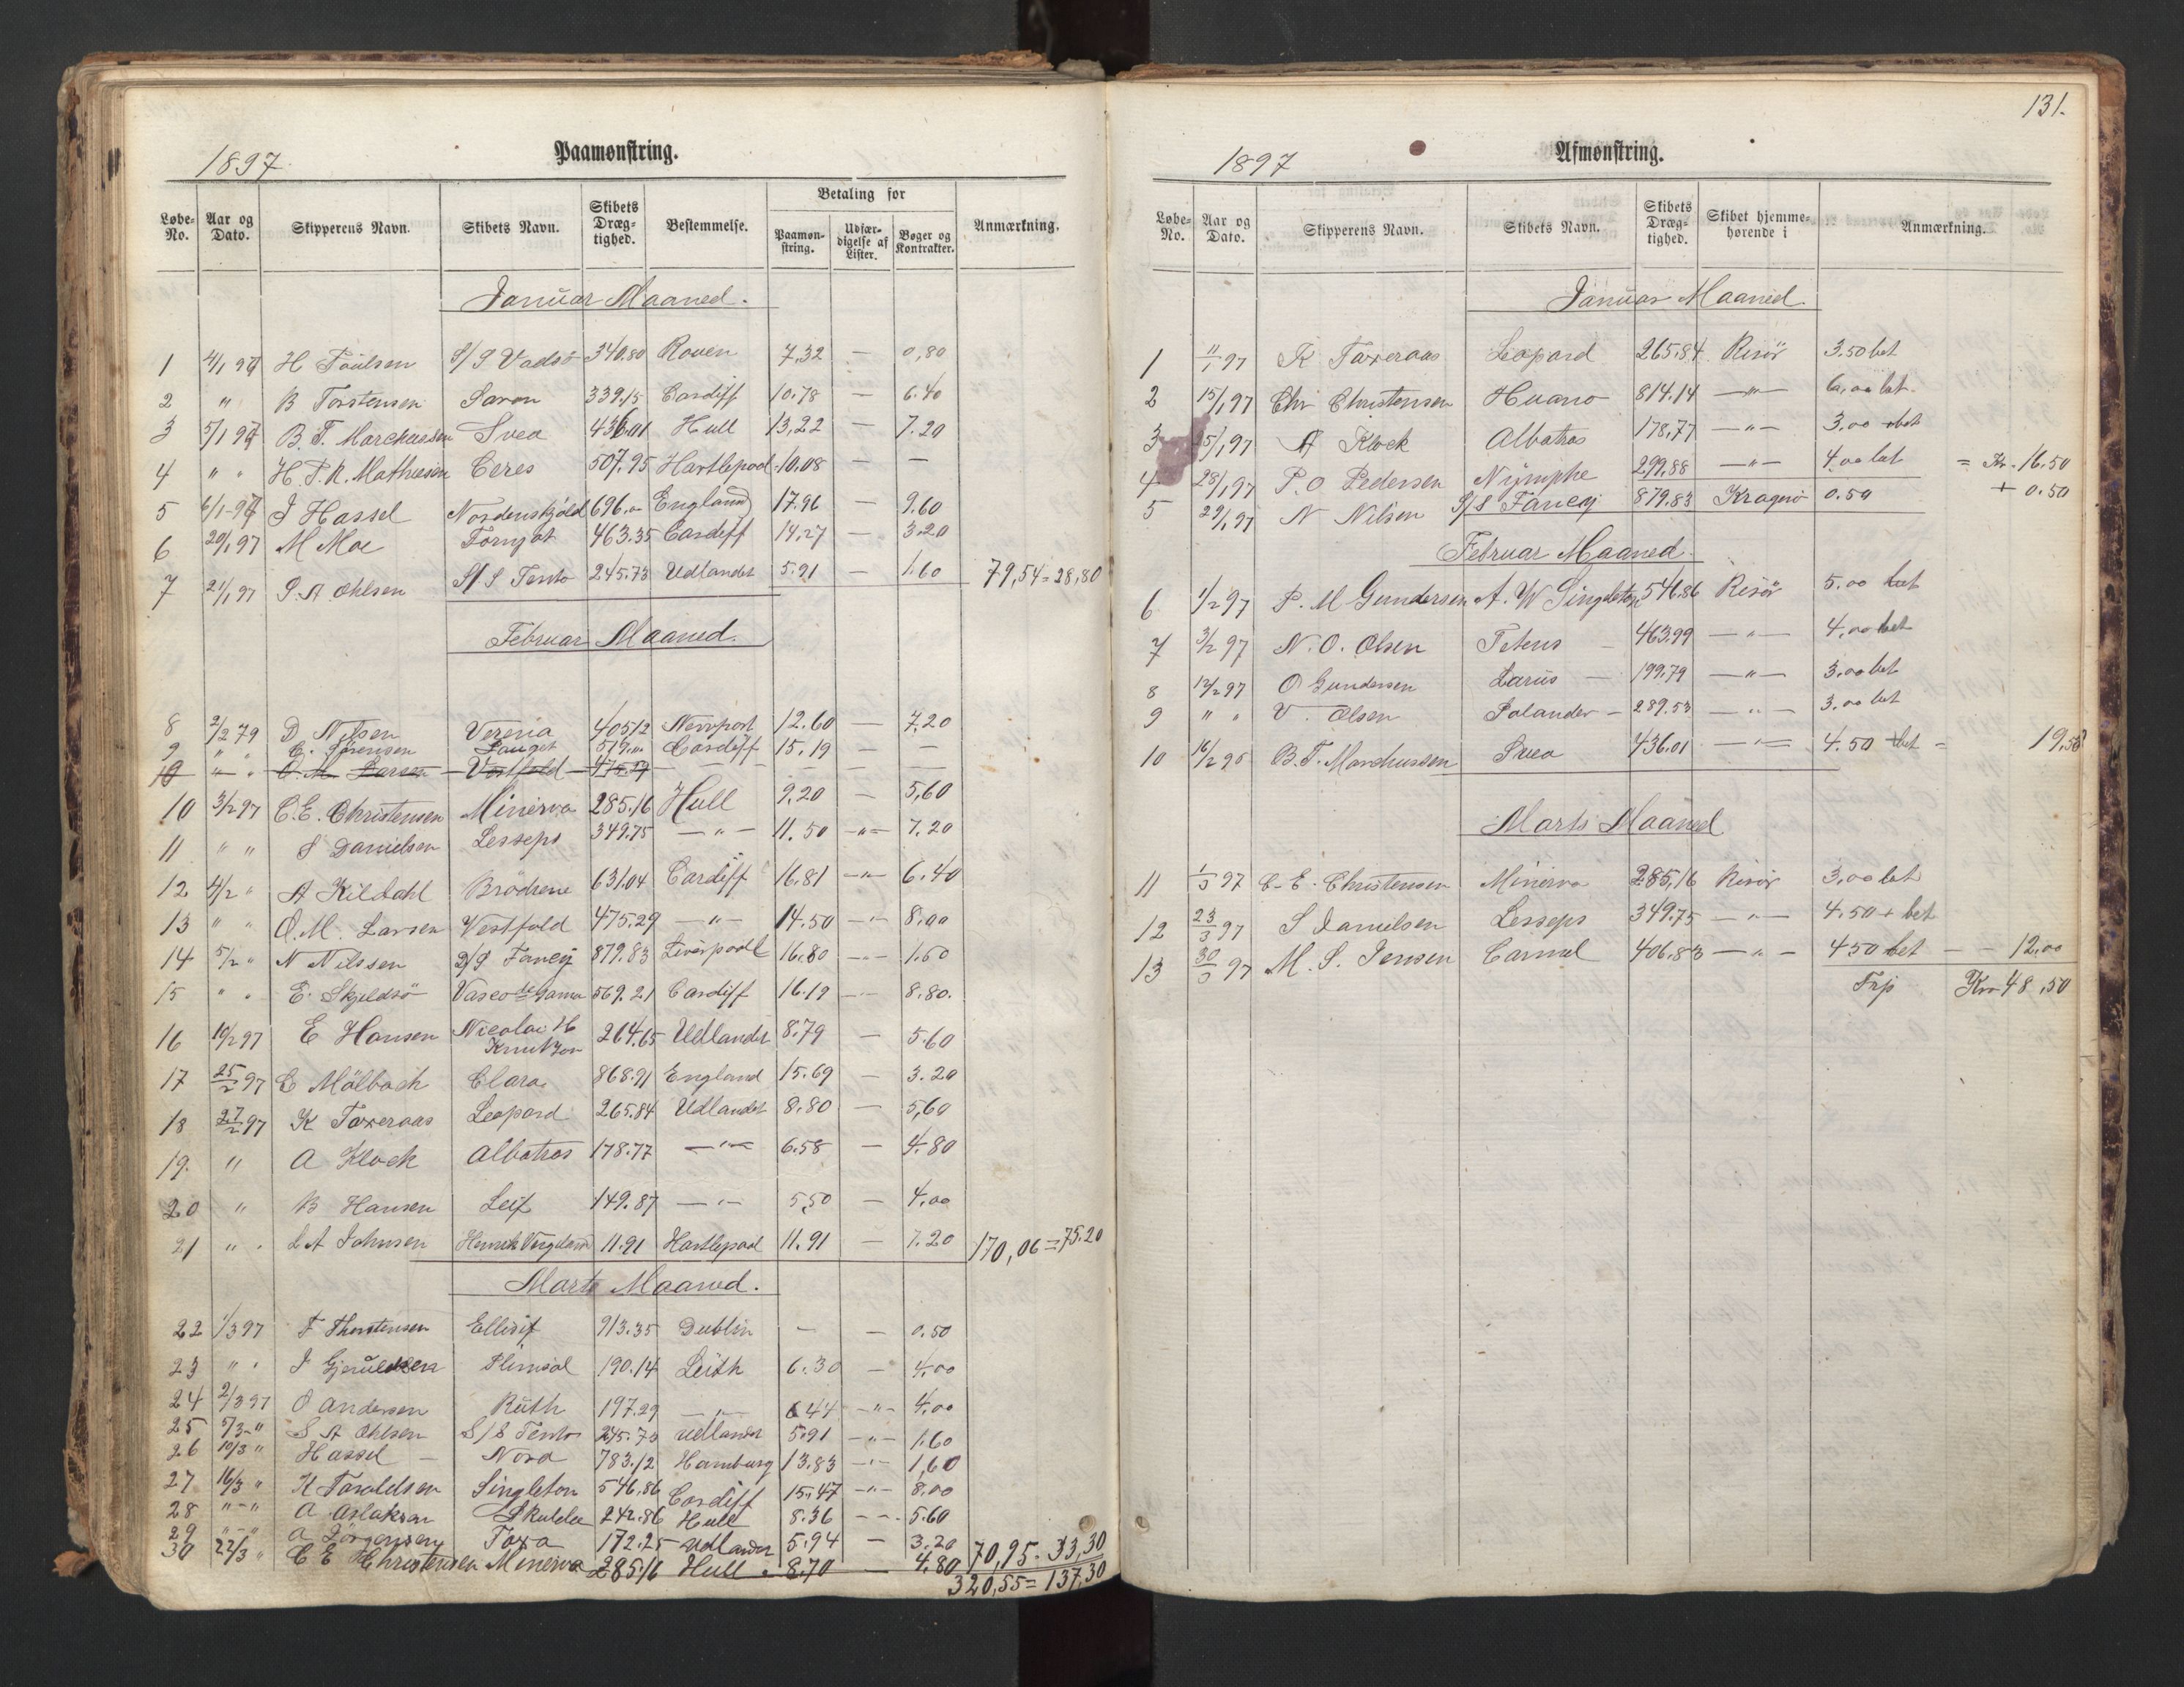 1897
Paamønstring.
Løbe-No. Aar og Dato. Skipperens Navn. Skibets Navn. Skibets Dræg-tighed. Bestemmelse. Betaling for Paamøn-string. Udfær-digelse af Lister. Bøger og Kontrakter. Anmærkning.
Januar Maaned.
1 4/1 97 H Poulsen S/S Vadsø 340.80 Rouen 7,32 — 0,80
2 " B Torstensen Saron 339.15 Cardiff 10.78 — 6.40
3 5/1 97 B. T. Marchussen Svea 436.01 Hull 13,22 — 7.20
4 " " H. T. R. Mathiesen Ceres 507.95 Hartlepool 10.08 — —
5 6/1-97 J Hassel Nordenskjöld 696.00 England 17.96 9.60
6 20/1 97 M Moe Tornjot 463.35 Cardiff 14,27 — 3.20
7 21/1 97 S. A Ohlsen S/S Tento 245.73 Udlandet 5.91 — 1.60 79,54=28,80
Februar Maaned.
8 2/2 79 D Nilsen Vereria 405.12 Newport 12.60 — 7.20
9 " E. Sørensen 519.00 Cardiff 15,19 — —
10 " " O. M. Larsen Vestfold 475.29 — — — —
10 3/2 97 C. E. Christensen Minerva 285.16 Hull 9,20 — 5,60
11 " " S Danielsen Lesseps 349.75 — " — 11.50 —"— 7.20
12 4/2 " A Kildahl Brødrene 631.04 Cardiff 16.81 —"— 6.40
13 " " O. M. Larsen Vestfold 475.29 — " — 14.50 —"— 8.00
14 5/2 " N Nilssen S/S Fancy 879.83 Liverpool 16.80 —"— 1.60
15 " " E. Skjeldsö Vasco de Gama 569.21 Cardiff 16.19 —"— 8.80.
16 10/2 97 E Hansen Nicolai H Knutzon 264.65 Udlandet 8.79 — 5.60
17 25/2 97 E Mölbach Clara 868.91 England 15.69 — 3.20
18 27/2 97 K Taxeraas Leopard 265.84 Udlandet 8.80 — 5,60
19. " A Klock Albatros 178.77 — " — 6.58 — 4.80
20 " B Hansen Leif 149.87 — " — 5,50 — 4,00
21 " " L A Johnsen Henrik Vergeland 11.91 Hartlepool 11.91 — 7.20 170,06=75.20
Marts Maaned.
22 1/3 97 T Thorstensen Ellisif 913.35 Dublin — — 0.50
23 " " J Gjeruldsen Plimsol 190.14 Leith 6.30 — 4,00
24 2/3 97 O Andersen Ruth 197.29 — " — 6 44 —"— 4,00
25 5/3 " S A Ohlsen S/S Tento 245.73 Udlandet 5.91 —"— 1.60
26 10/3 " Hassel — Nord 783.12 Hamburg 13.83 —"— 1,60
27 16/3 " K Taraldsen Singleton 546.86 Cardiff 15.47 —"— 8.00
28 " — " A Aslaksen Skulda 242.86 Hull 8.36 — — 5.60
29 " — " A Jörgensen Taxa 172.25 Udlandet 5.94 — 3.20
30 22/3 " C E Christensen Minerva 285.16 Hull 8.70 — 4.80 70,95. 33,30
320,55=137,30
131.
1897
Afmønstring.
Løbe-No. Aar og Dato. Skipperens Navn. Skibets Navn. Skibets Dræg-tighed. Skibet hjemme-hørende i Anmærkning.
Januar Maaned.
1 11/1 97 K Taxeraas Leopard 265.84 Risör 3.50 bet
2 15/1 97 Chr Christensen Huano 814.14 — " — 6,00 bet.
3 25/1 97 A Klock Albatros 178,77 — " — 3.00 bet
4 28/1 97 P. O Pedersen Nymphe 299.88 — " — 4,00 bet = Kr. 16.50
5 29/1 97 N Nilsen S/S Fancy 879.83 Kragerö 0.50 + 0.50
Februar Maaned.
6 1/2 97 P. M Gundersen A. W Singleton 546.86 Risör 5.00 bet
7 3/2 97 N. O. Olsen Tetens — 463.99 — " — 4,00 bet
8 12/2 97 O Gundersen Larus — 199.79 — " — 3.00 bet
9 " " V. Olsen Palander — 289.53 — " — 3,00 bet
10 16/2 95 B. T. Marchussen Svea 436.01 — " — 4.50 bet = 19.50
Marts Maaned
11 1/3 97 C. E. Christensen Minerva 285,16 Risör 3,00 bet
12 23/3 97 S Danielsen Lesseps 349.75 — " — 4.50 + bet
13 30/3 97 M. S. Jensen Carmel 406.83 — " — 4 50 bet — - 12.00
Trp Kr 48,50